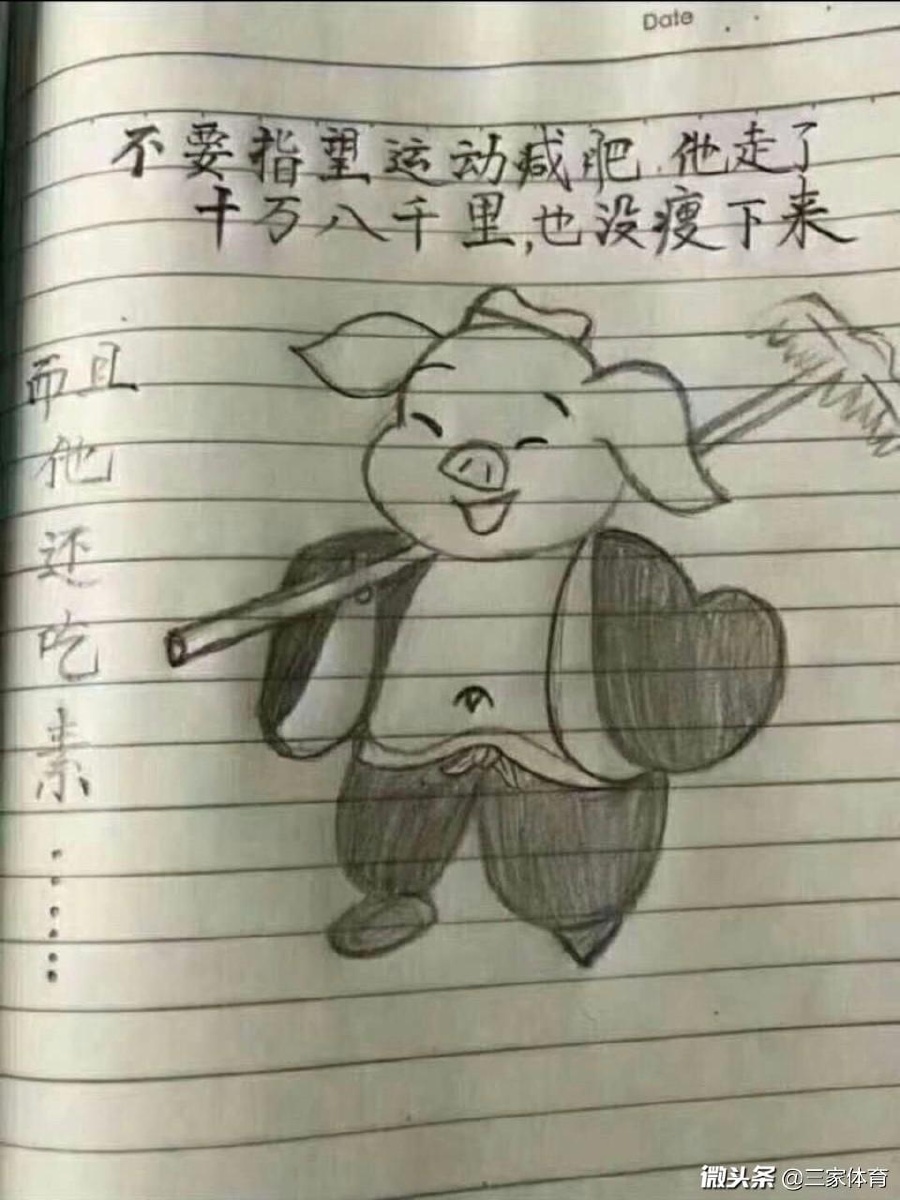 Date
不要指望运动减肥.他走了
十万八千里,也没瘦下来
而且他还吃素......
微头条 @三家体育